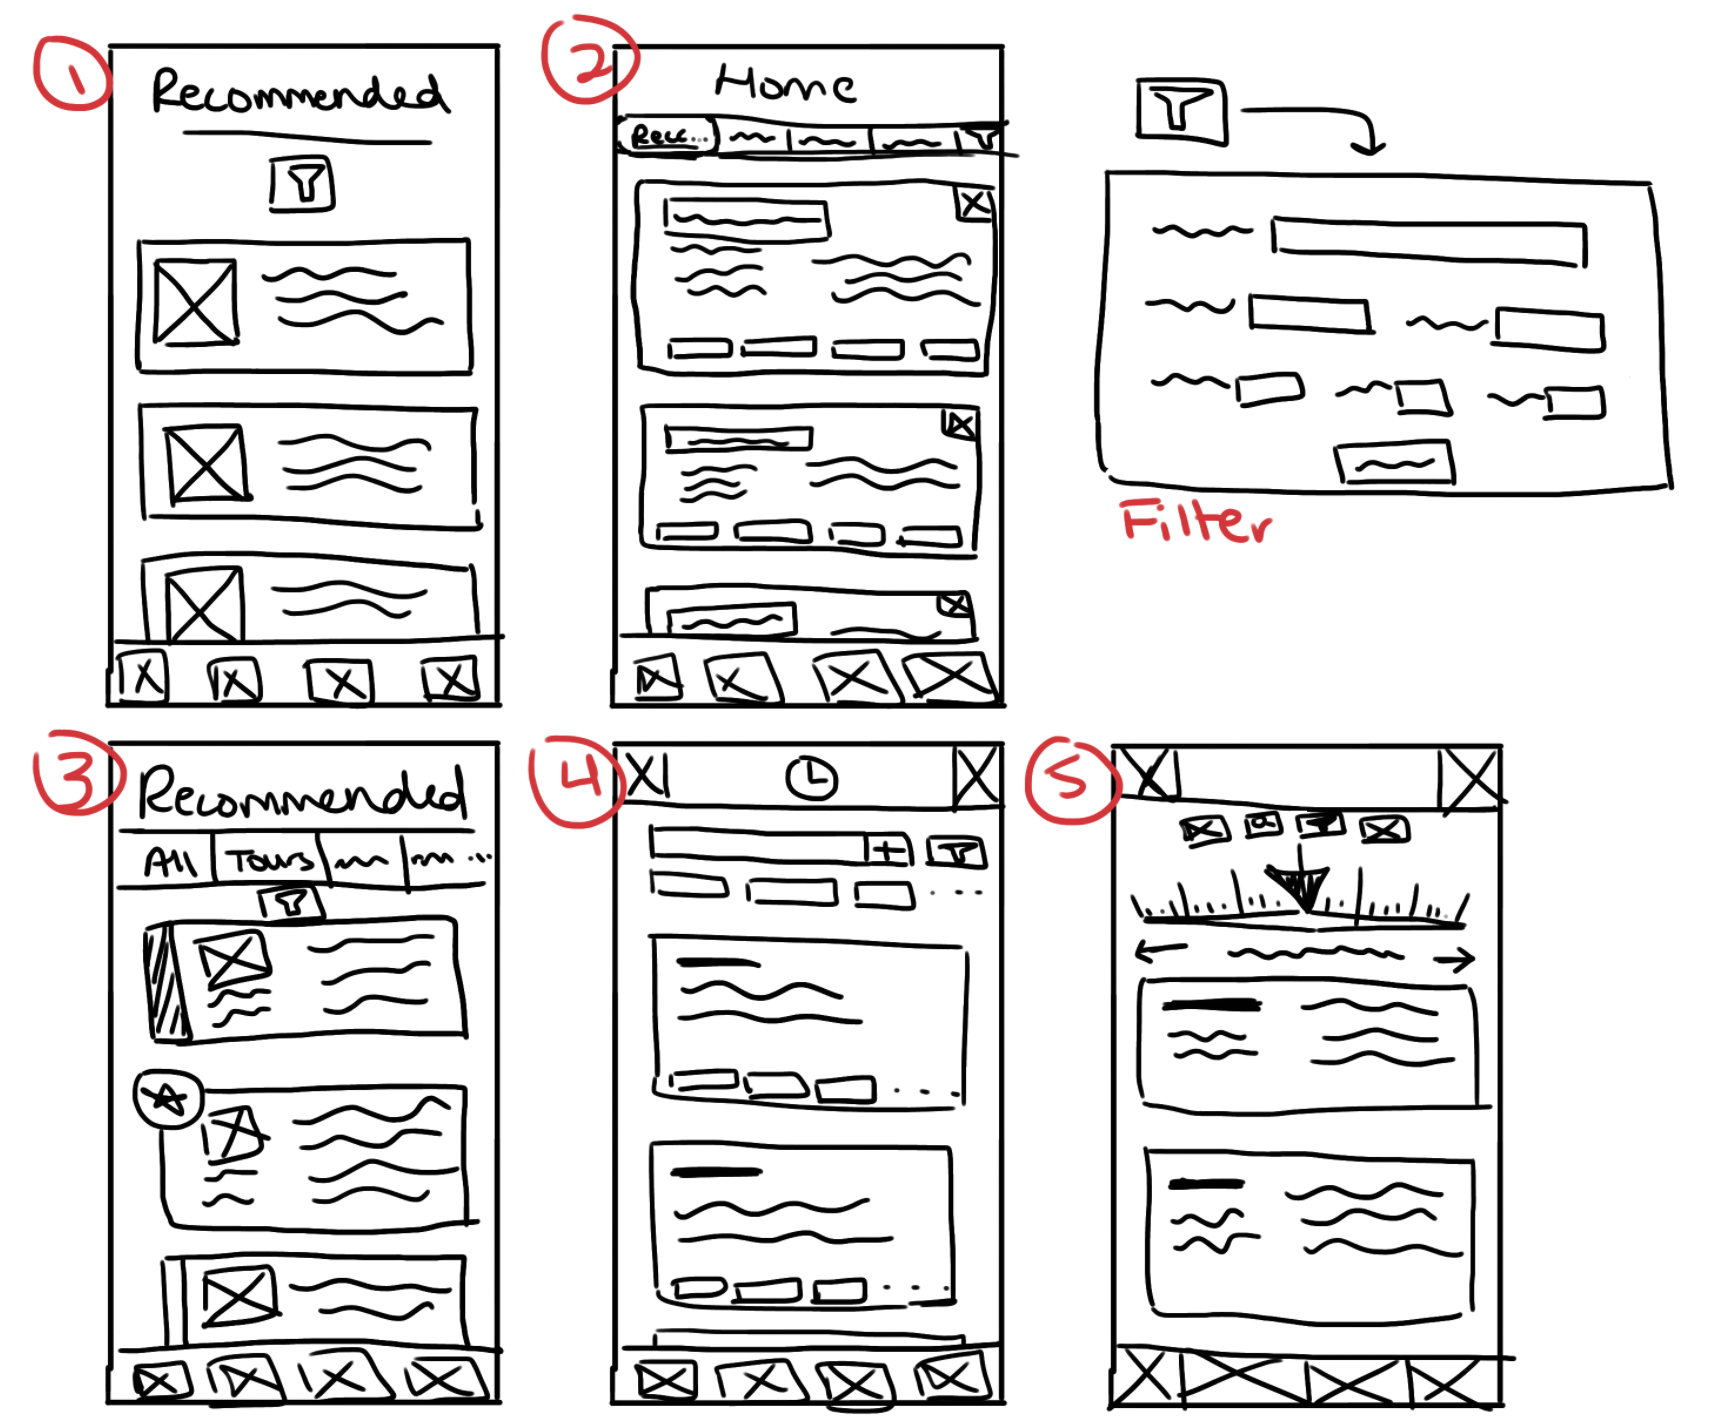 1
Recommended
2
Home
Recc...
Filter
3
Recommended
All Tours ...
4
5